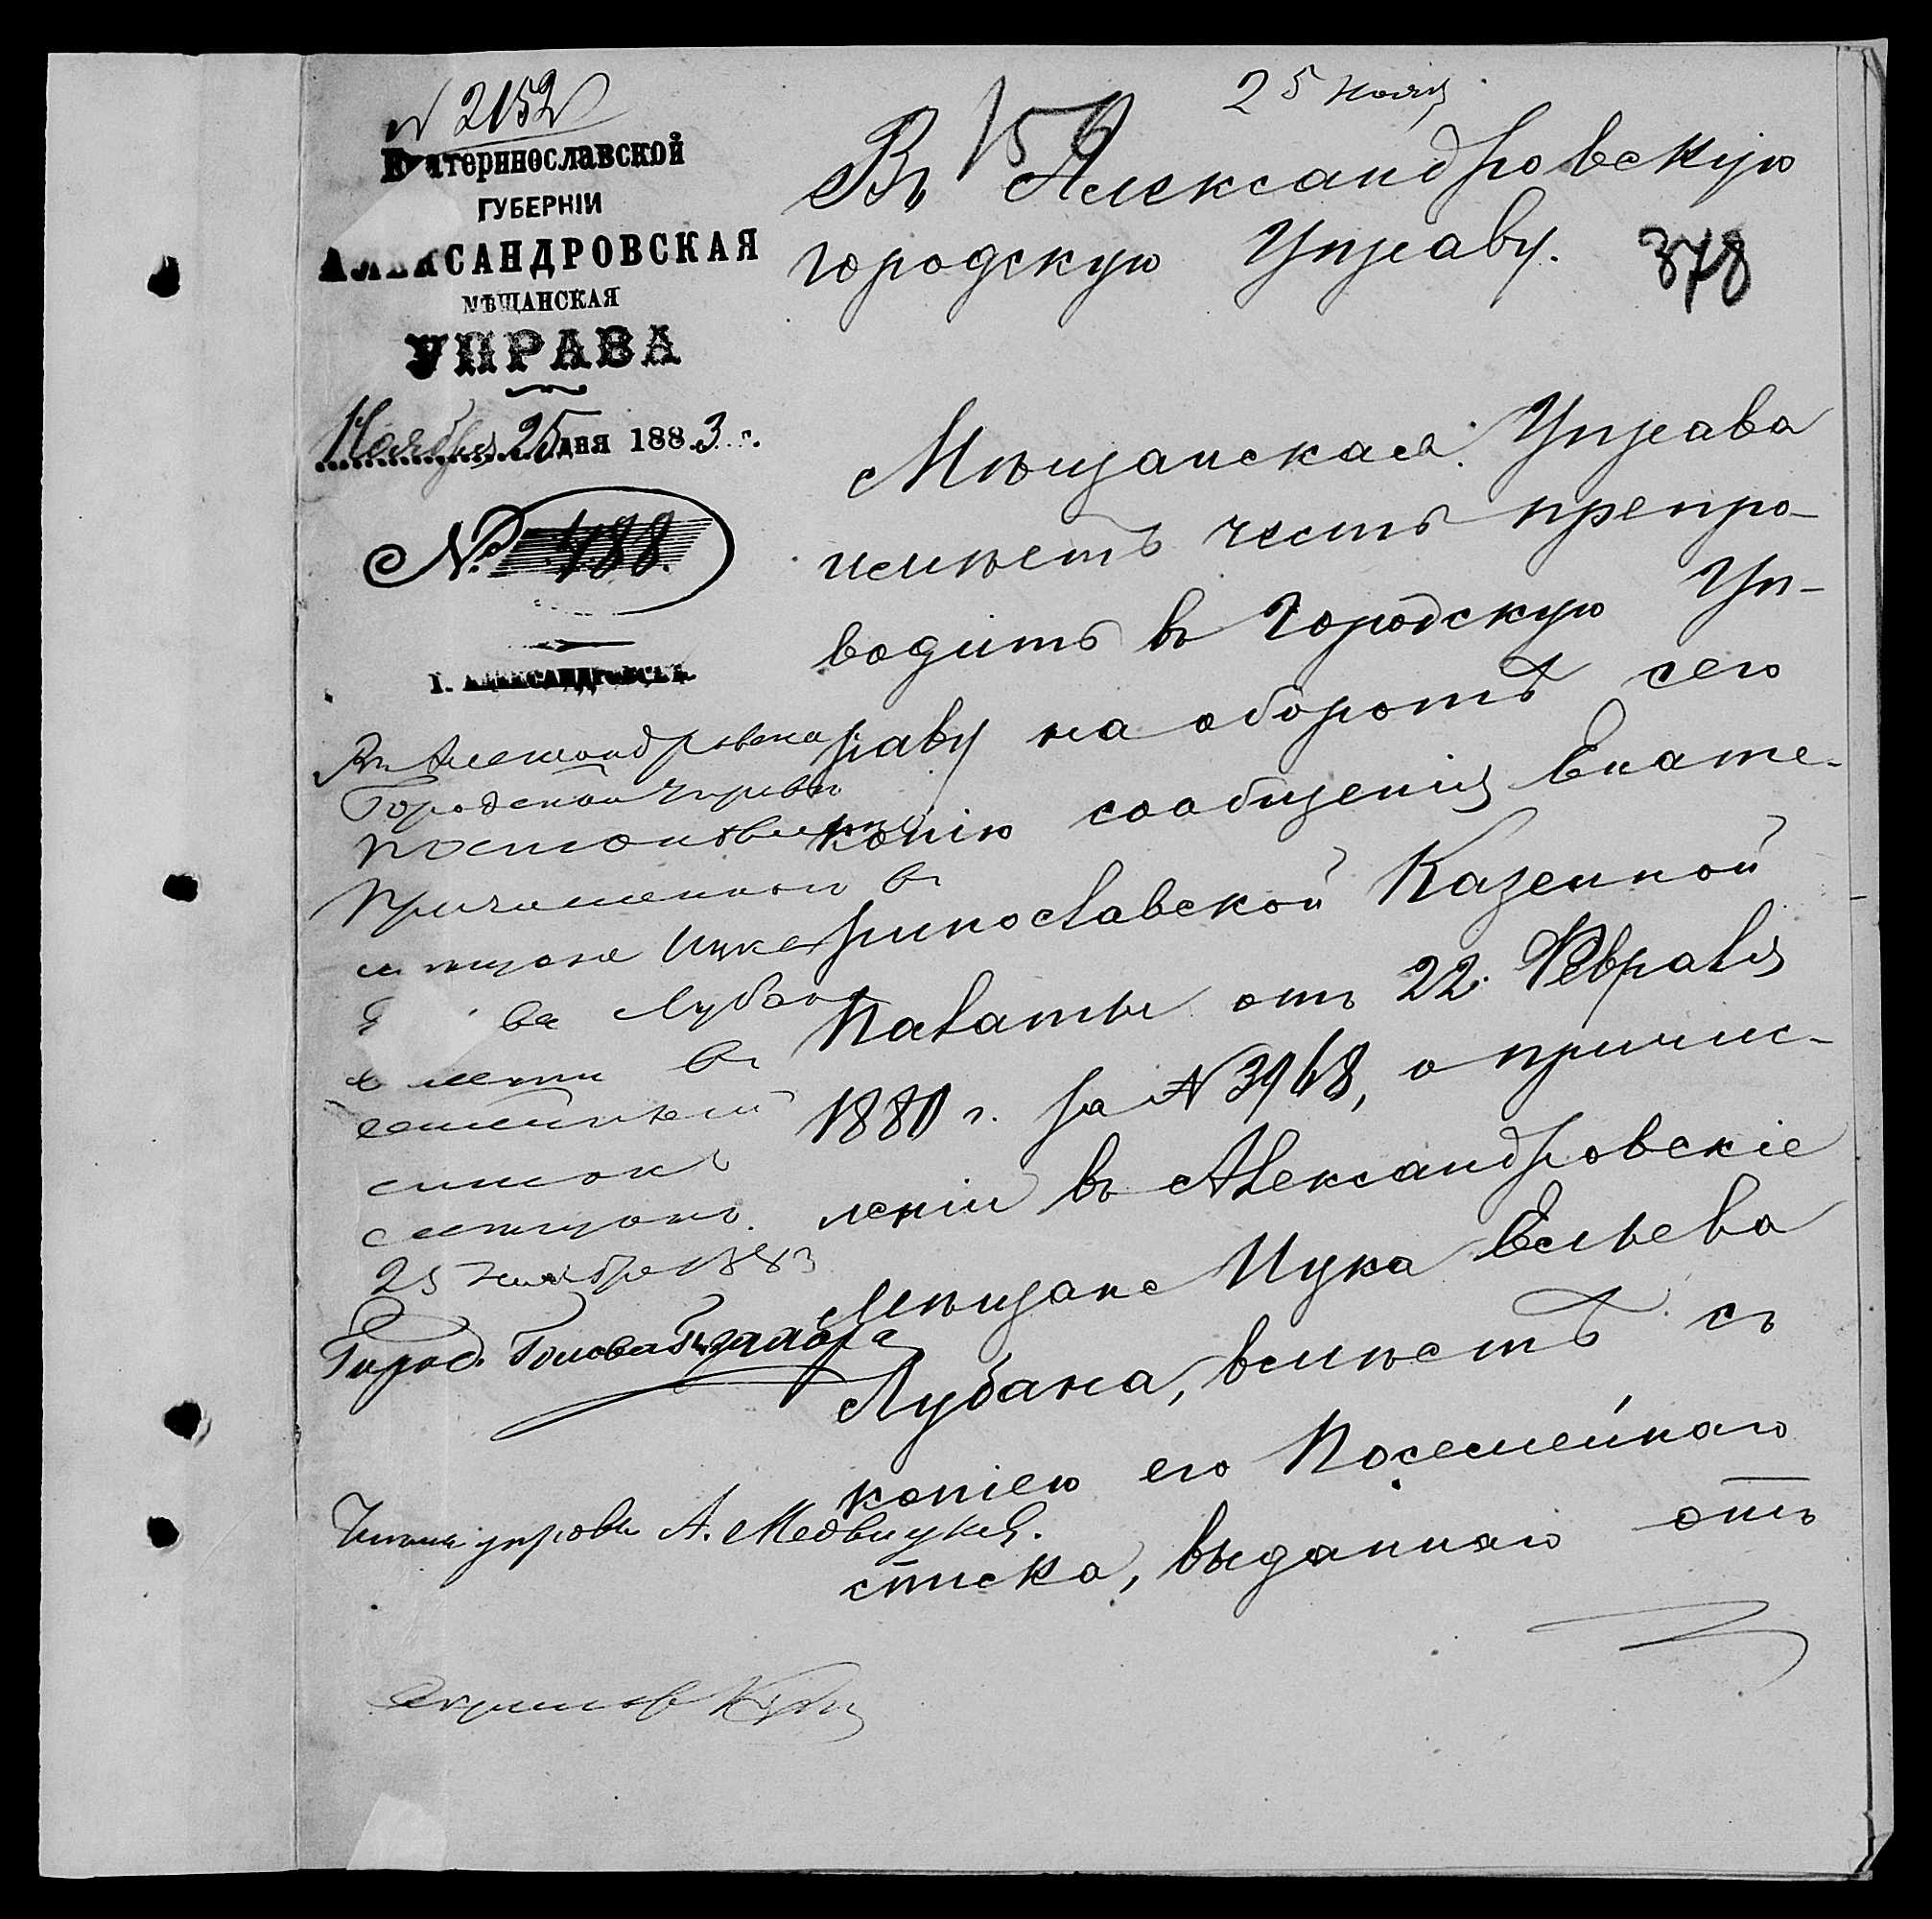 № 2152
Екатеринославской
ГУБЕРНІИ
АЛЕКСАНДРОВСКАЯ
МѢЩАНСКАЯ
УПРАВА
Ноября 25 дня 1883 г.
№ 488.
Г. АЛЕКСАНДРОВСКЪ.
25 Нояб
Въ Александровскую
городскую Управу.
378
Мѣщанская Управа
имѣетъ честь препро-
водить въ Городскую Уп-
раву на оборотѣ сего
копію сообщенія Екате-
ринославской Казенной
Палаты отъ 22 Февраля
1880 г. за № 3968, о причис-
леніи въ Александровскіе
Мѣщане Ицка
Лубана, вмѣстѣ съ
копіею его Посемейнаго
списка, выданнаго отъ
Въ Александровской
Городской Управѣ
въ
мѣщане Ицка
Лубана
въ
семейный
списокъ
мѣщанъ.
25 Ноября 1883
Город. Голова
Членъ управы А. Медвицкій.